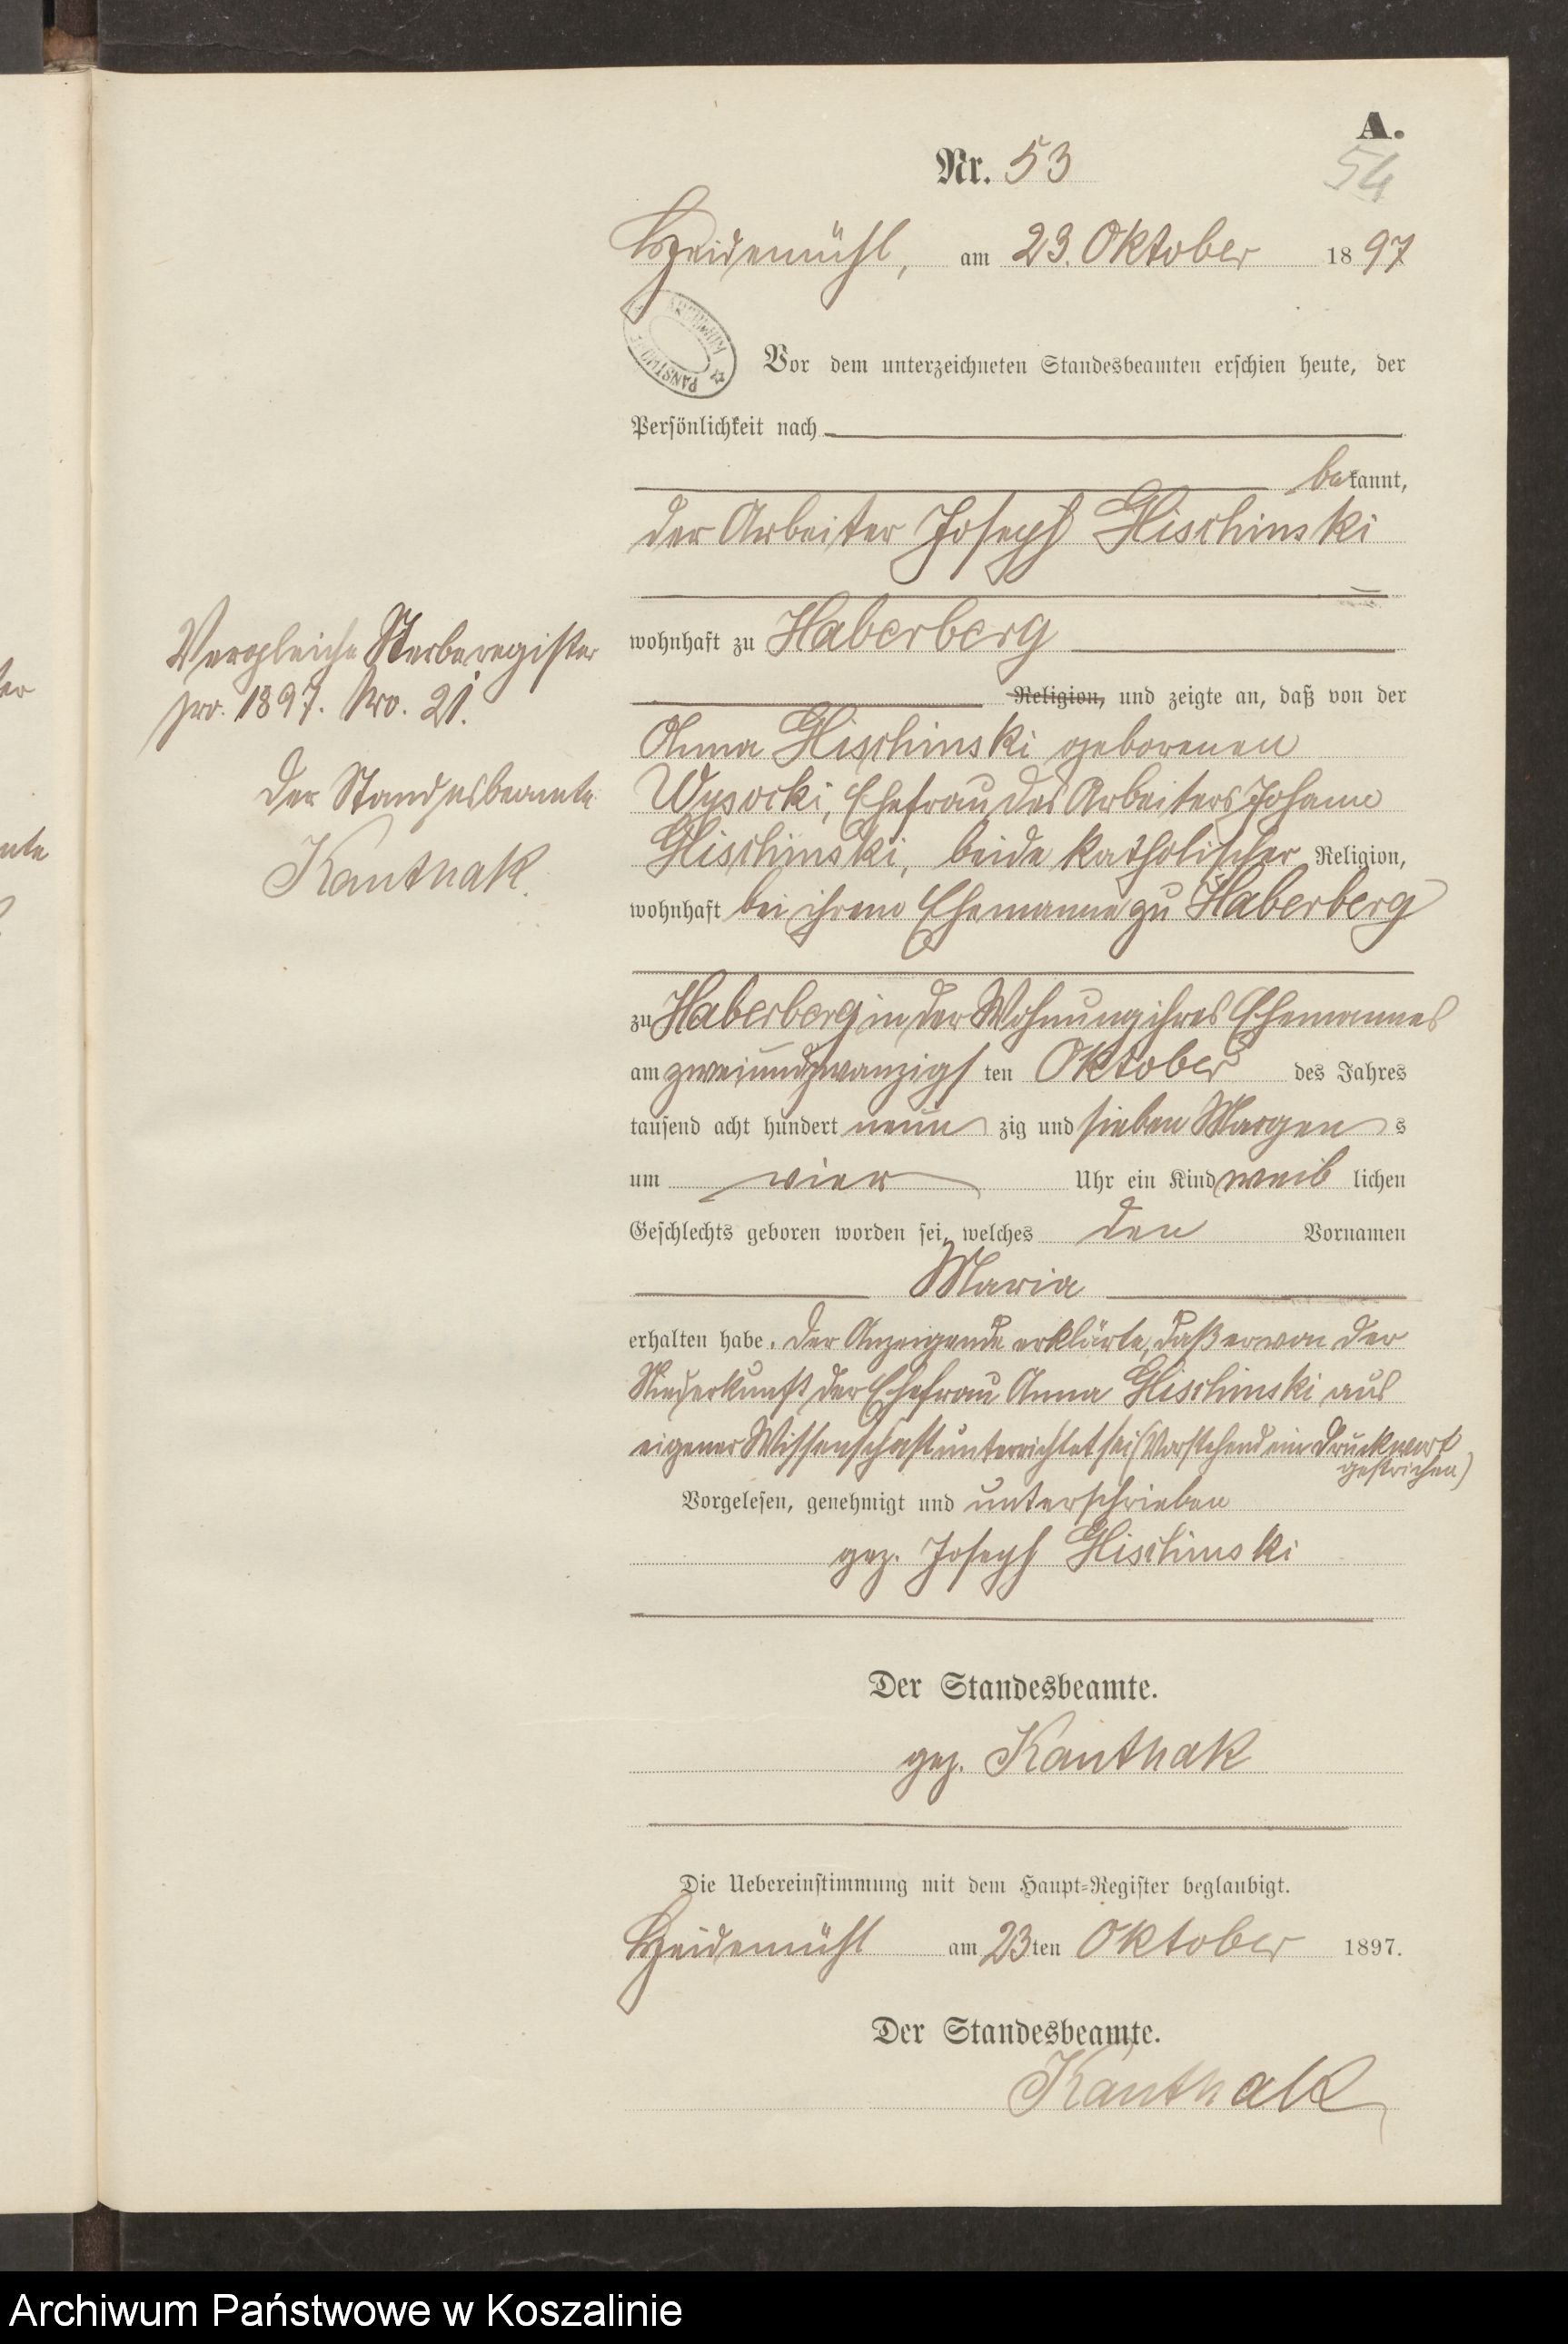 A.
Nr. 53
54
Heidemühl, am 23. Oktober 1897
Vor dem unterzeichneten Standesbeamten erschien heute, der
Persönlichkeit nach
bekannt,
der Arbeiter Joseph Glischinski
wohnhaft zu Haberberg
Religion, und zeigte an, daß von der
Anna Glischinski geborenen
Wysocki, Ehefrau des Arbeiters Johann
Glischinski, beide katholischer Religion,
wohnhaft bei ihrem Ehemanne zu Haberberg
zu Haberberg in der Wohnung ihres Ehemannes
am zweiundzwanzigsten Oktober des Jahres
tausend acht hundert neunzig und sieben Morgens
um vier Uhr ein Kind weiblichen
Geschlechts geboren worden sei, welches den Vornamen
Maria
erhalten habe. Der Anzeigende erklärte, daß er von der
Niederkunft der Ehefrau Anna Glischinski aus
eigener Wissenschaft unterrichtet sei (Vorstehend ein Druckwort
gestrichen)
Vorgelesen, genehmigt und unterschrieben
gez. Joseph Glischinski
Der Standesbeamte.
gez. Kanthak
Die Uebereinstimmung mit dem Haupt-Register beglaubigt.
Heidemühl am 23ten Oktober 1897.
Der Standesbeamte.
Kanthak
Vergleiche Sterberegister
pro. 1897. Nro. 21.
Der Standesbeamte
Kanthak.
Archiwum Państwowe w Koszalinie